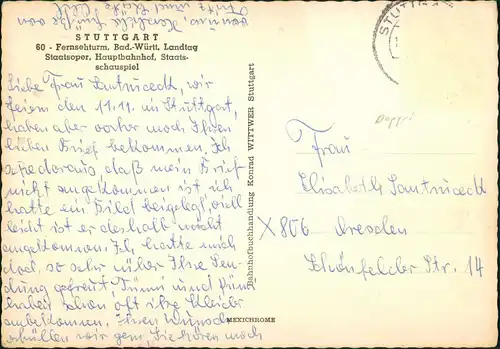 STUTTGART
60 - Fernsehturm, Bad.-Württ. Landtag
Staatsoper, Hauptbahnhof, Staats-
schauspiel
Liebe Frau Santruceck, wir
feiern den 11.11. in Stuttgart,
haben aber vorher noch Ihren
lieben Brief bekommen. Ich
daß mein Brief
nicht angekommen ist ich
hatte ein Bild beigelegt, viell
leicht ist er deshalb nicht
angekommen. Ich hatte mich
doch so sehr über Ihre Sen-
dung gefreut, und
haben schon oft Kleider
Ihren Wunsch
erfüllen wir gern, Sie hören noch
Bahnhofbuchhandlung Konrad WITTWER Stuttgart
MEXICHROME
STUTTG
Frau
Elisabeth Santruceck
X 806 Dresden
Schönfelder Str. 14